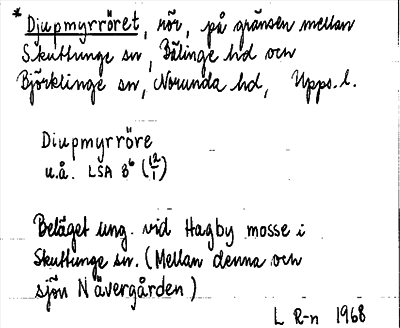 * Djupmyrröret, rör, på gränsen mellan
Skuttunge sn, Bälinge hd och
Björklinge sn, Norunda hd, Upps. l.
Diupmyrröre
u.å. LSA B⁶ (12/1)
Beläget ung. vid Hagby mosse i
Skuttunge sn. (Mellan denna och
sjön Nävergården)
L R-n 1968